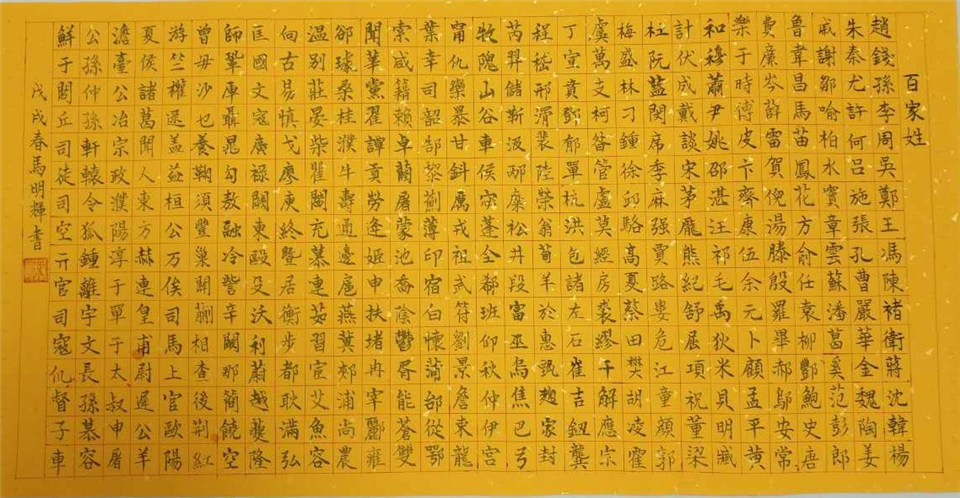 百家姓
趙錢孫李周吳鄭王馮陳褚衛蔣沈韓楊
朱秦尤許何吕施張孔曹嚴華金魏陶姜
戚謝鄒喻柏水竇章雲蘇潘葛奚范彭郎
魯韋昌馬苗鳳花方俞任袁柳酆鮑史唐
費廉岑薛雷賀倪湯滕殷羅畢郝鄔安常
樂于時傅皮卞齊康伍余元卜顧孟平黃
和穆蕭尹姚邵湛汪祁毛禹狄米貝明臧
計伏成戴談宋茅龐熊紀舒屈項祝董梁
杜阮藍閔席季麻强賈路婁危江童顏郭
梅盛林刁鍾徐邱駱高夏蔡田樊胡凌霍
虞萬支柯昝管盧莫經房裘繆干解應宗
丁宣賁鄧郁單杭洪包諸左石崔吉鈕龔
程嵇邢滑裴陸榮翁荀羊於惠甄麴家封
芮羿儲靳汲邴糜松井段富巫烏焦巴弓
牧隗山谷車侯宓蓬全郗班仰秋仲伊宮
甯仇欒暴甘鈄厲戎祖武符劉景詹束龍
葉幸司韶郜黎薊薄印宿白懷蒲邰從鄂
索咸籍賴卓藺屠蒙池喬陰鬱胥能蒼雙
聞莘黨翟譚貢勞逄姬申扶堵冉宰酈雍
郤璩桑桂濮牛壽通邊扈燕冀郟浦尚農
温別莊晏柴瞿閻充慕連茹習宦艾魚容
向古易慎戈廖庾終暨居衡步都耿滿弘
匡國文寇廣祿闕東歐殳沃利蔚越夔隆
師鞏厙聶晁勾敖融冷訾辛闞那簡饒空
曾毋沙乜養鞠須豐巢關蒯相查後荊紅
游竺權逯蓋益桓公万俟司馬上官歐陽
夏侯諸葛聞人東方赫連皇甫尉遲公羊
澹臺公冶宗政濮陽淳于單于太叔申屠
公孫仲孫軒轅令狐鍾離宇文長孫慕容
鮮于閭丘司徒司空亓官司寇仉督子車
戊戌春馬明輝書